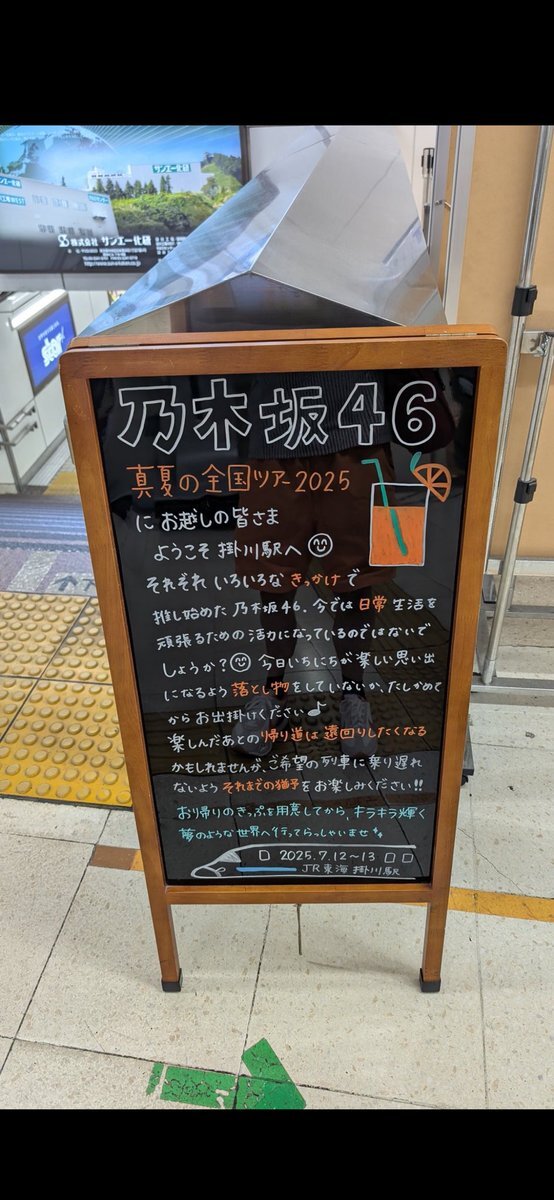 サンエー化研
株式会社 サンエー化研
乃木坂46
真夏の全国ツアー2025
に お越しの皆さま
ようこそ 掛川駅へ
それぞれ いろいろな きっかけ で
推し始めた 乃木坂46。今では 日常 生活を
頑張るための 活力になっているのではないで
しょうか？ 今日いちにちが 楽しい 思い出
になるよう 落とし物 をしていないか、たしかめて
から お出掛けください♪
楽しんだあとの 帰り道は 遠回りしたくなる
かもしれませんが、ご希望の 列車に 乗り遅れ
ないよう それまでの猶予 をお楽しみください!!
お帰りのきっぷを用意してから、キラキラ輝く
夢のような世界へ行ってらっしゃいませ
2025.7.12～13
JR東海 掛川駅